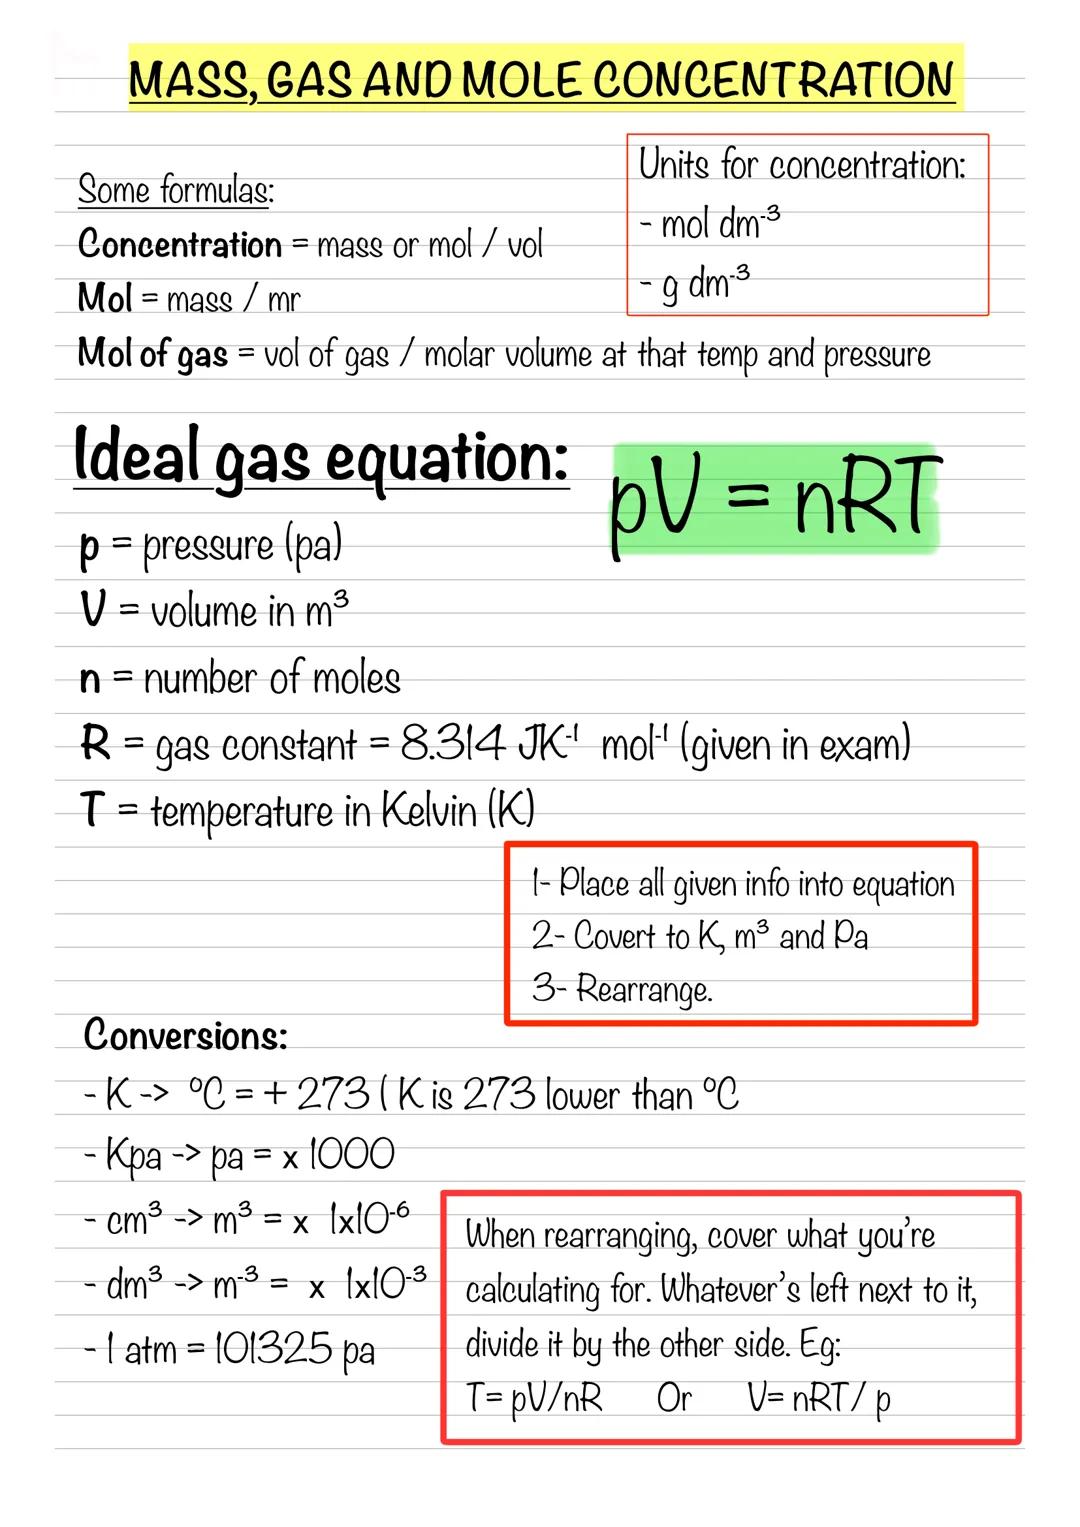 MASS, GAS AND MOLE CONCENTRATION
Some formulas:
Concentration = mass or mol / vol
Mol = mass / mr
Mol of gas = vol of gas / molar volume at that temp and pressure
Units for concentration:
- mol dm⁻³
- g dm⁻³
Ideal gas equation:
pV = nRT
p = pressure (pa)
V = volume in m³
n = number of moles
R = gas constant = 8.314 JK⁻¹ mol⁻¹ (given in exam)
T = temperature in Kelvin (K)
1- Place all given info into equation
2- Covert to K, m³ and Pa
3- Rearrange.
Conversions:
- K -> °C = + 273 ( K is 273 lower than °C
- Kpa -> pa = x 1000
- cm³ -> m³ = x 1x10⁻⁶
- dm³ -> m⁻³ = x 1x10⁻³
- 1 atm = 101325 pa
When rearranging, cover what you're
calculating for. Whatever's left next to it,
divide it by the other side. Eg:
T= pV/nR Or V= nRT/ p